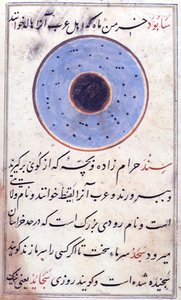 سابود خرمن ماه که اهل عرب آنرا هاله خوانند
سند حرام زاده و بچه که از کوی برگیرند
بپرورند و عرب آنرا لقیط خوانند و نام ولا
است و نام رودی بزرگ است که در حد خراسان
میرود سجد سرماء سخت تا اگر کسی را سرما زند گویند
سجیده شده است و گویند روزی سجاید یعنی